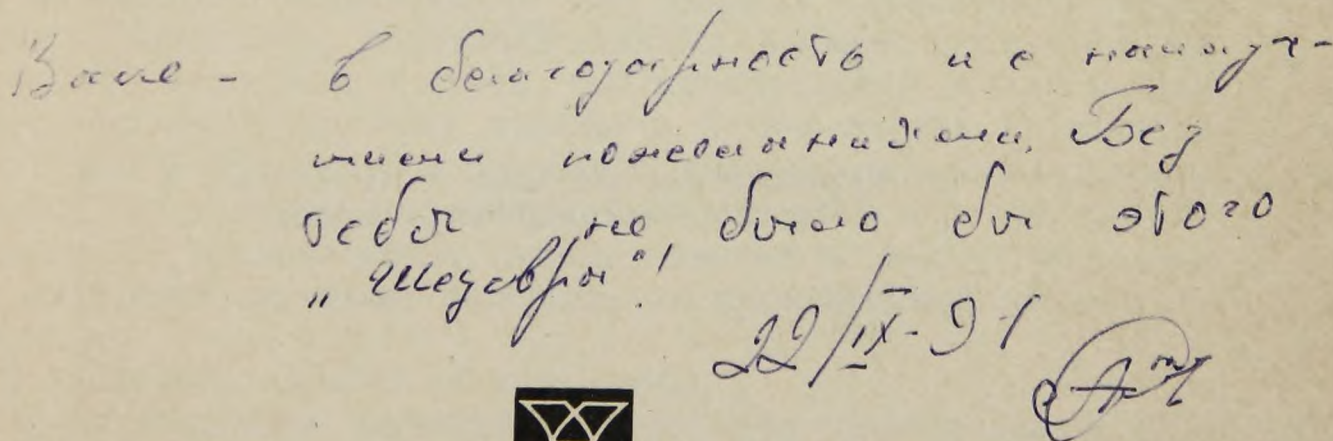 Вале - в благодарность и с наилуч-
шими пожеланиями. Без
тебя не было бы этого
„Шедевра"!
22/IX-91